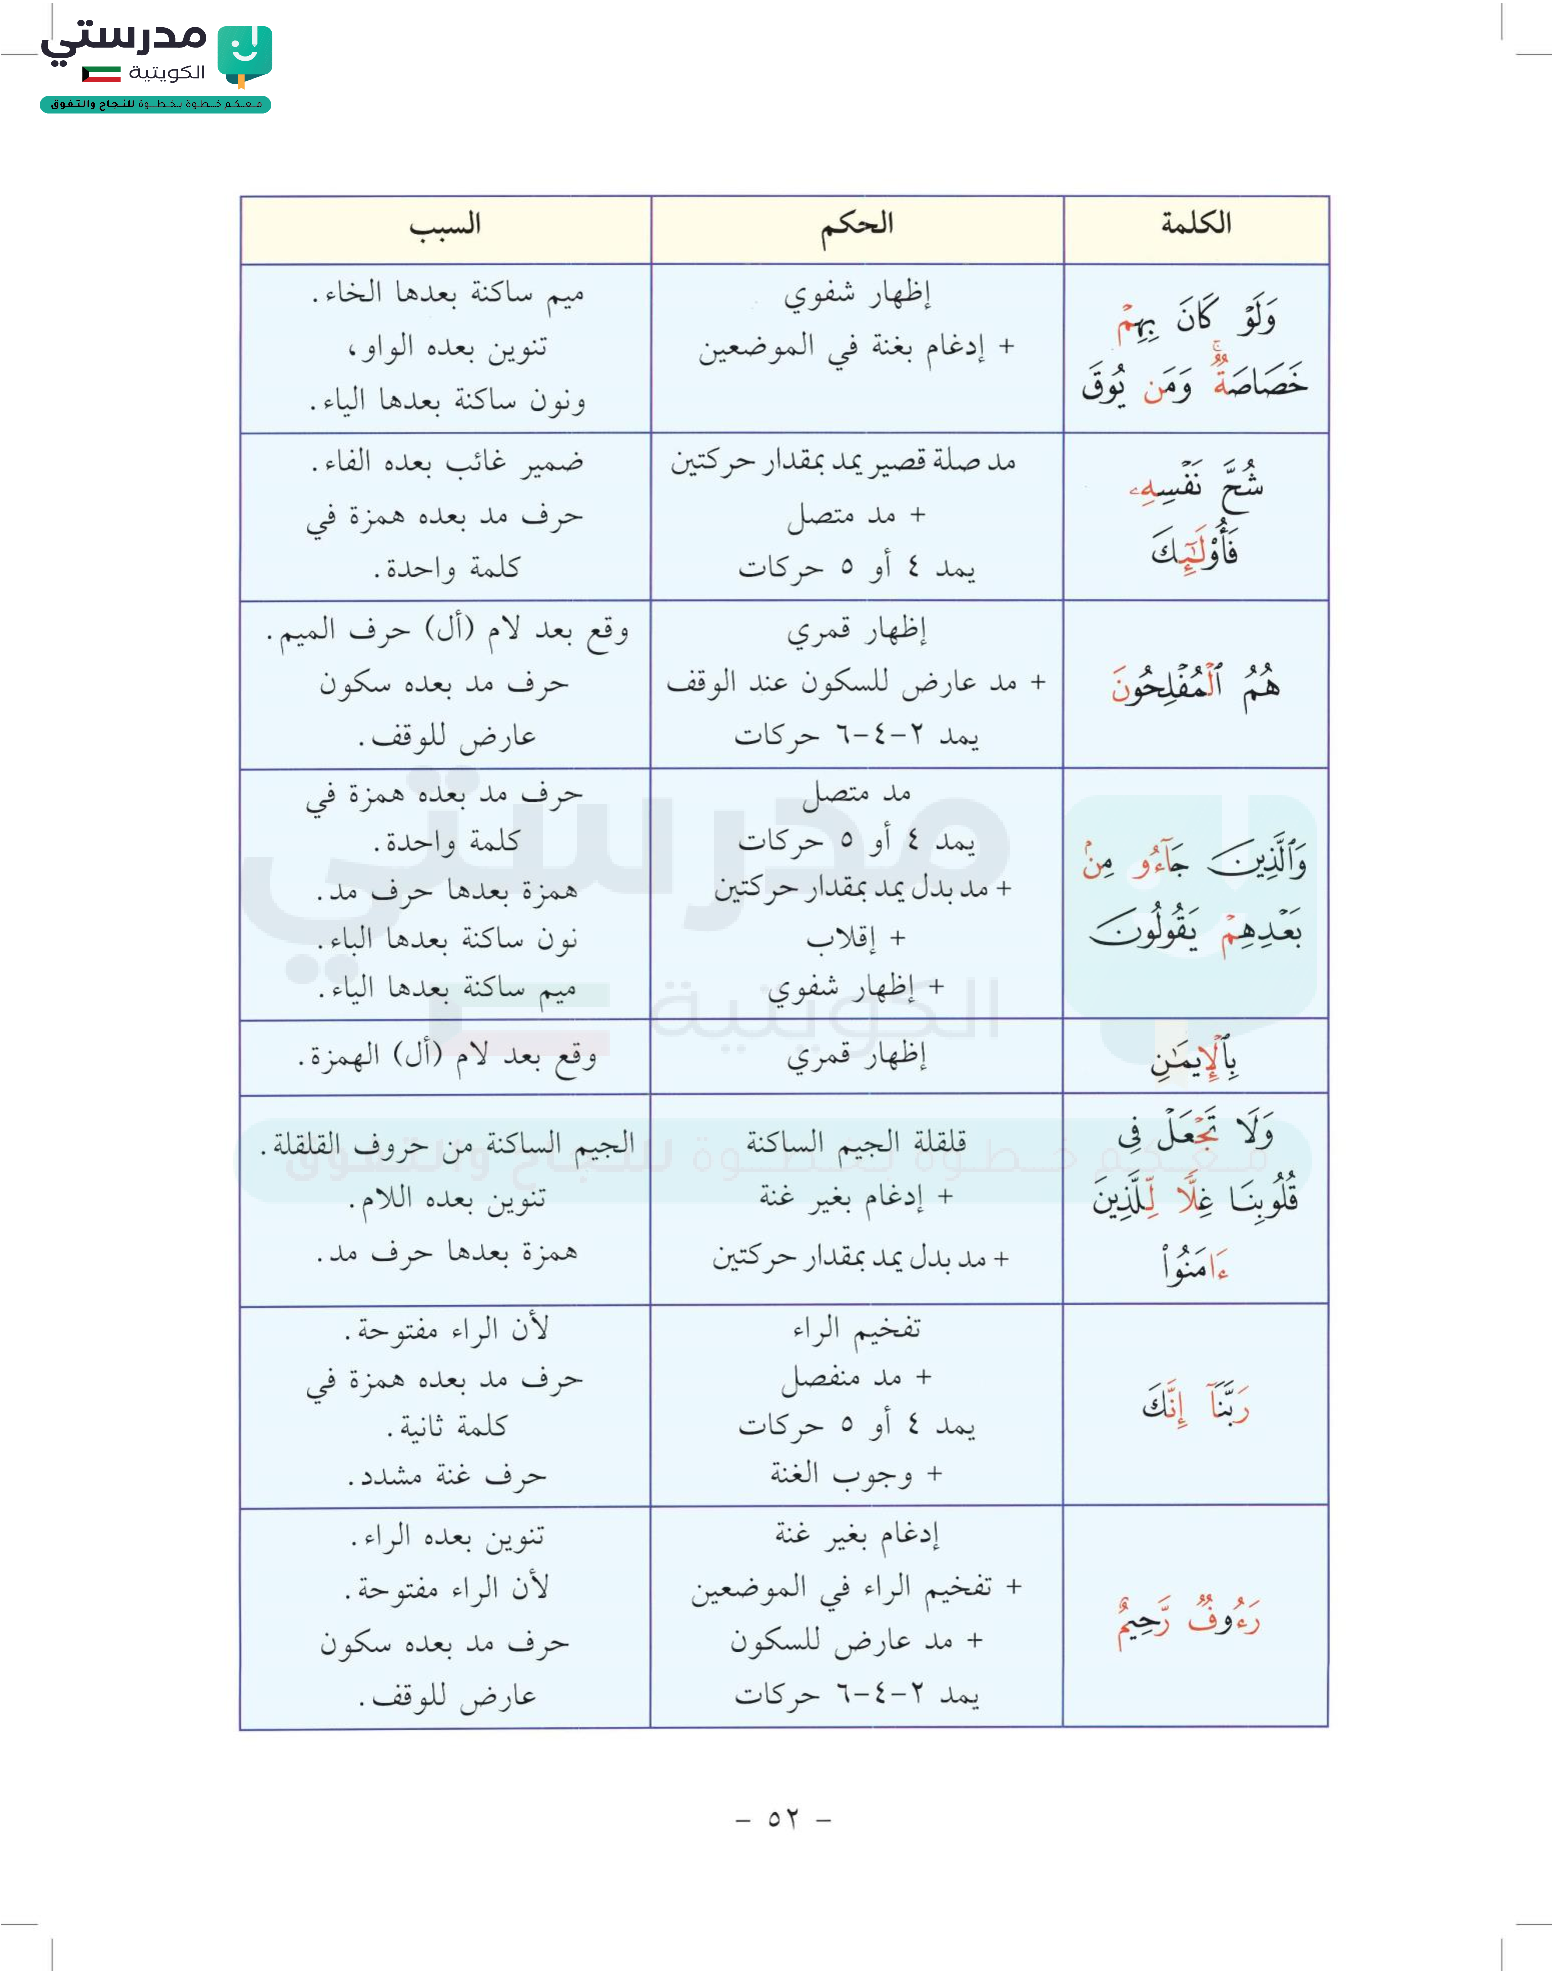 مدرستي
الكويتية
معكم خطوة بخطوة للنجاح والتفوق
الكلمة
الحكم
السبب
وَلَوْ كَانَ بِهِمْ
خَصَاصَةٌۚ وَمَن يُوقَ
إظهار شفوي
+ إدغام بغنة في الموضعين
ميم ساكنة بعدها الخاء.
تنوين بعده الواو،
ونون ساكنة بعدها الياء.
شُحَّ نَفْسِهِۦ
فَأُوْلَٰٓئِكَ
مد صلة قصير يمد بمقدار حركتين
+ مد متصل
يمد ٤ أو ٥ حركات
ضمير غائب بعده الفاء.
حرف مد بعده همزة في
كلمة واحدة.
هُمُ ٱلْمُفْلِحُونَ
إظهار قمري
+ مد عارض للسكون عند الوقف
يمد ٢-٤-٦ حركات
وقع بعد لام (أل) حرف الميم.
حرف مد بعده سكون
عارض للوقف.
وَٱلَّذِينَ جَآءُو مِنۢ
بَعْدِهِمْ يَقُولُونَ
مد متصل
يمد ٤ أو ٥ حركات
+ مد بدل يمد بمقدار حركتين
+ إقلاب
+ إظهار شفوي
حرف مد بعده همزة في
كلمة واحدة.
همزة بعدها حرف مد.
نون ساكنة بعدها الباء.
ميم ساكنة بعدها الياء.
بِٱلْإِيمَٰنِ
إظهار قمري
وقع بعد لام (أل) الهمزة.
وَلَا تَجْعَلْ فِى
قُلُوبِنَا غِلًّا لِّلَّذِينَ
ءَامَنُوا۟
قلقلة الجيم الساكنة
+ إدغام بغير غنة
+ مد بدل يمد بمقدار حركتين
الجيم الساكنة من حروف القلقلة.
تنوين بعده اللام.
همزة بعدها حرف مد.
رَبَّنَآ إِنَّكَ
تفخيم الراء
+ مد منفصل
يمد ٤ أو ٥ حركات
+ وجوب الغنة
لأن الراء مفتوحة.
حرف مد بعده همزة في
كلمة ثانية.
حرف غنة مشدد.
رَءُوفٌ رَّحِيمٌ
إدغام بغير غنة
+ تفخيم الراء في الموضعين
+ مد عارض للسكون
يمد ٢-٤-٦ حركات
تنوين بعده الراء.
لأن الراء مفتوحة.
حرف مد بعده سكون
عارض للوقف.
- ٥٢ -